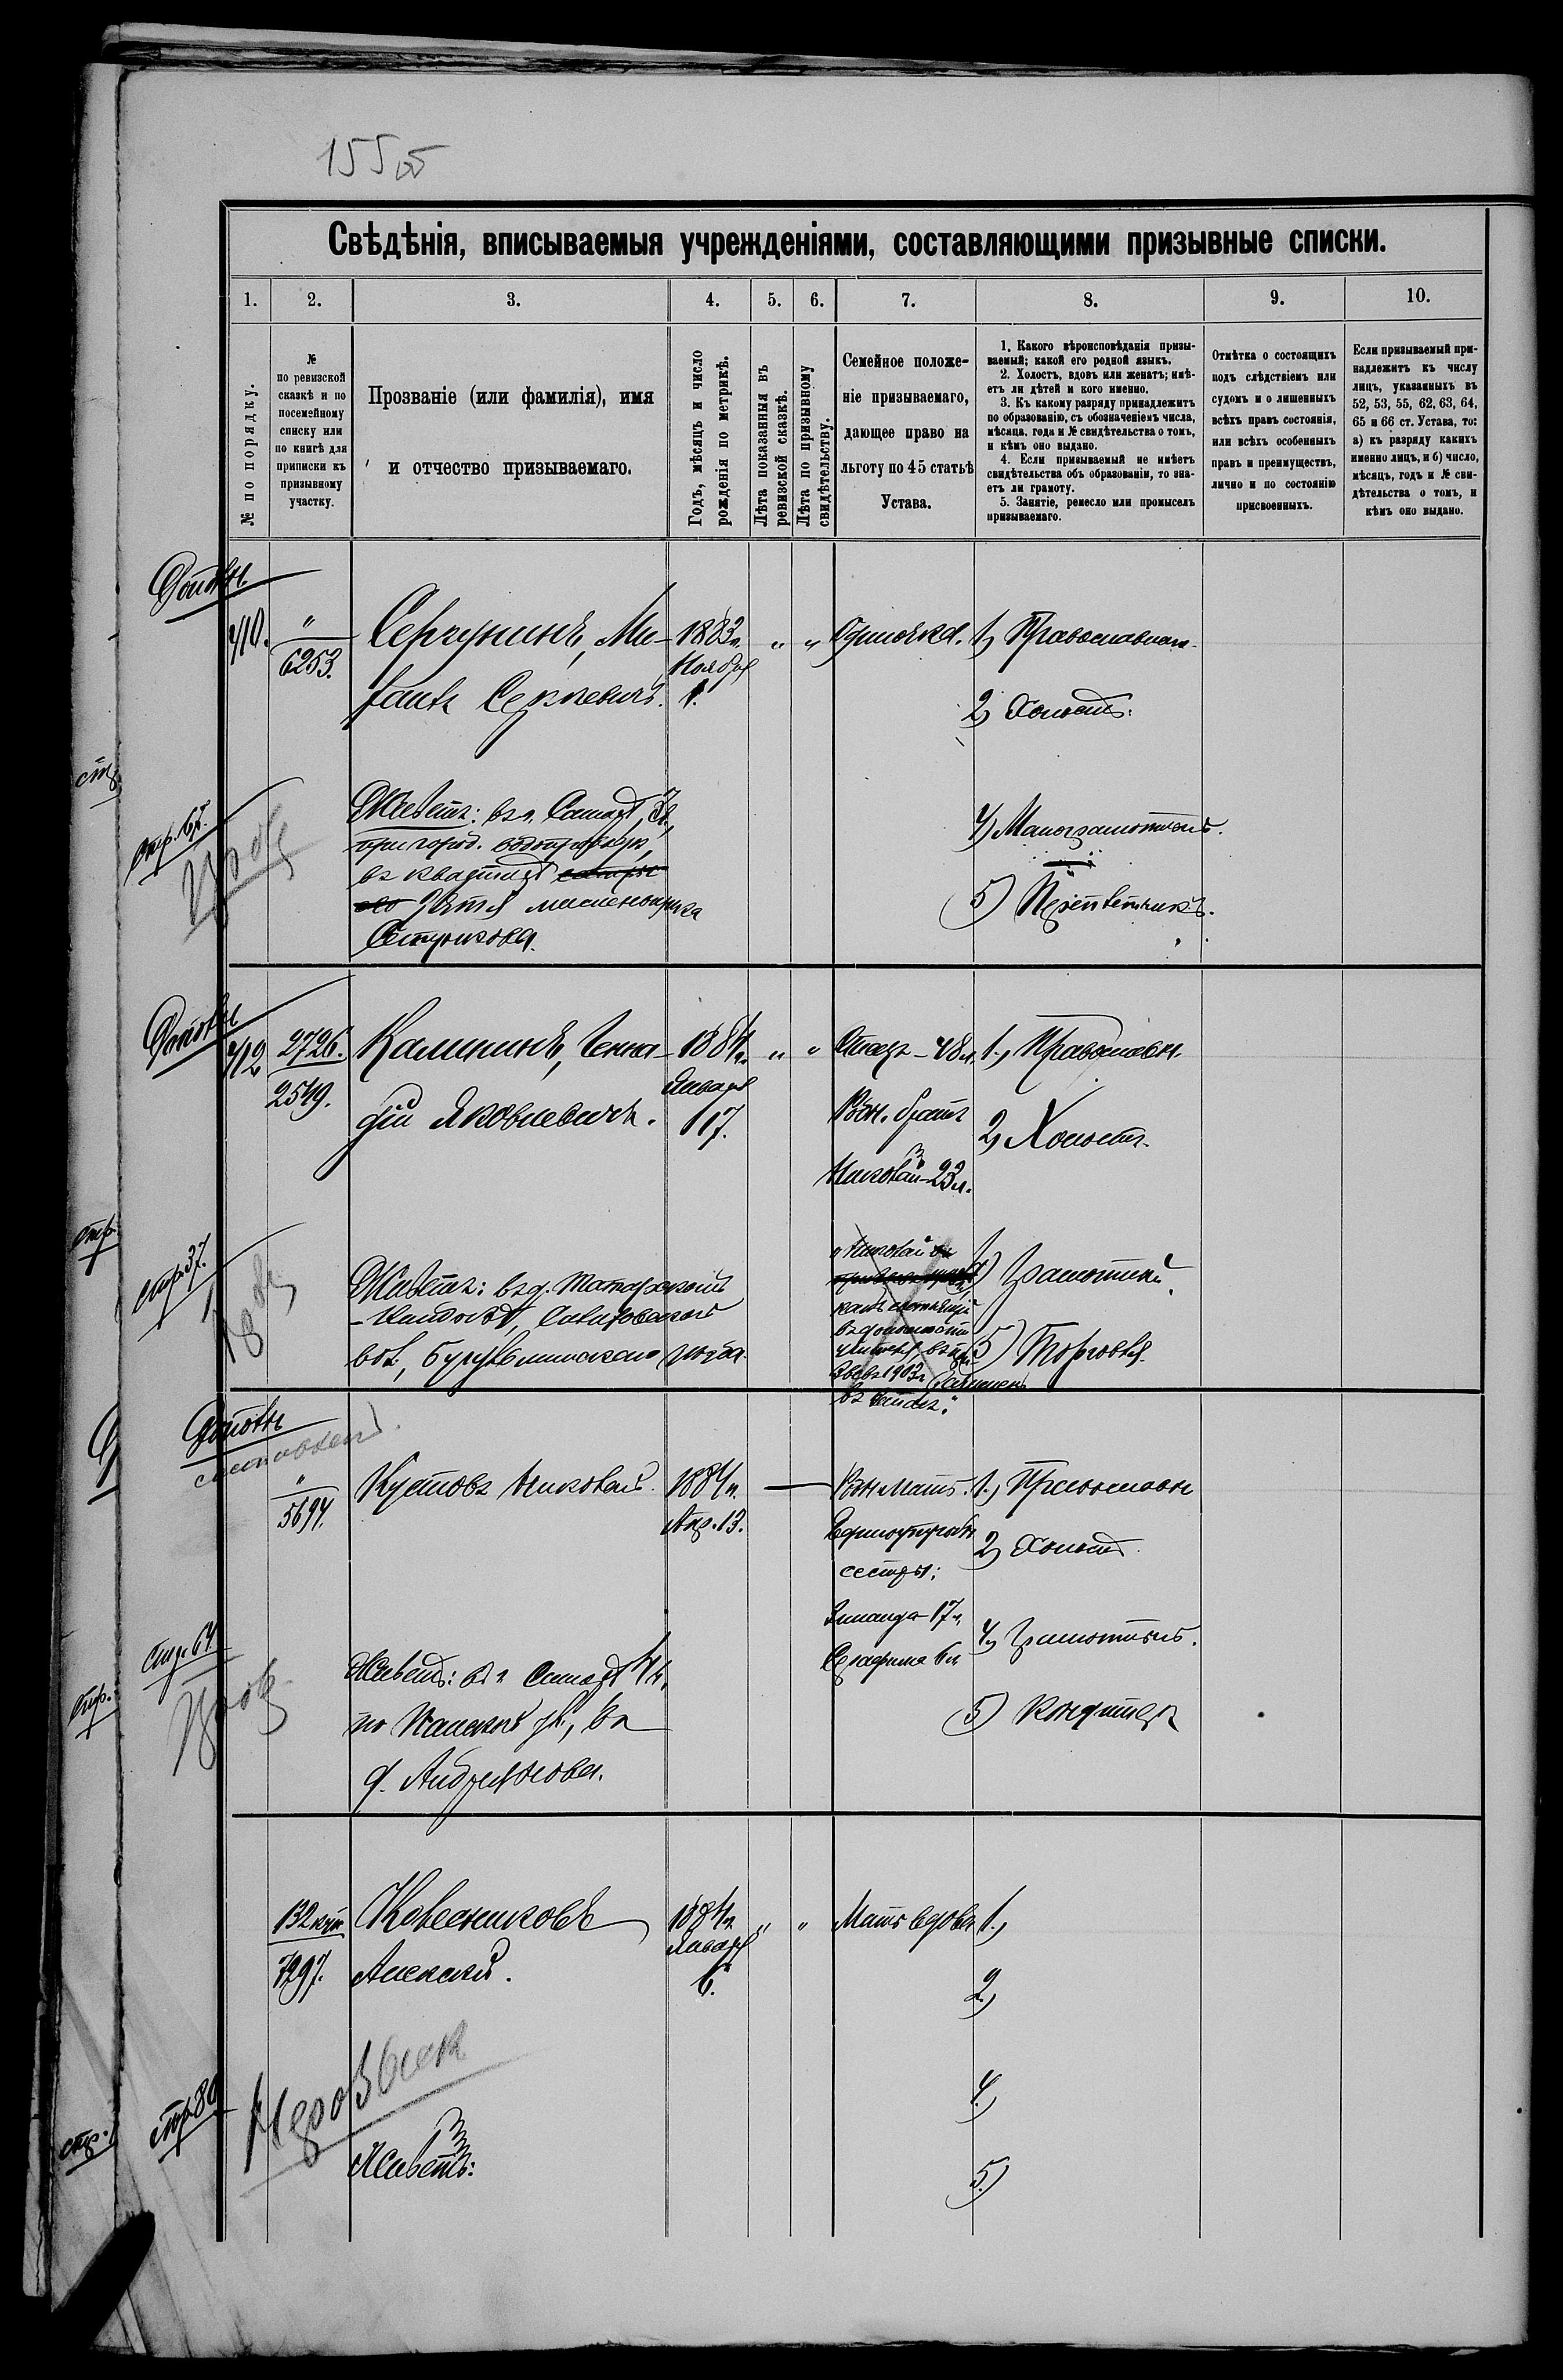 155 об
Свѣдѣнія, вписываемыя учрежденіями, составляющими призывные списки.
1. 2. 3. 4. 5. 6. 7. 8. 9. 10.
№ по порядку.
№
по ревизской
сказкѣ и по
посемейному
списку или
по книгѣ для
приписки къ
призывному
участку.
Прозваніе (или фамилія), имя
и отчество призываемаго.
Годъ, мѣсяцъ и число
рожденія по метрикѣ.
Лѣта показанныя въ
ревизской сказкѣ.
Лѣта по призывному
свидѣтельству.
Семейное положе-
ніе призываемаго,
дающее право на
льготу по 45 статьѣ
Устава.
1. Какого вѣроисповѣданія призы-
ваемый; какой его родной языкъ.
2. Холостъ, вдовъ или женатъ; имѣ-
етъ ли дѣтей и кого именно.
3. Къ какому разряду принадлежитъ
по образованію, съ обозначеніемъ числа,
мѣсяца, года и № свидѣтельства о томъ,
и кѣмъ оно выдано.
4. Если призываемый не имѣетъ
свидѣтельства объ образованіи, то зна-
етъ ли грамоту.
5. Занятіе, ремесло или промыселъ
призываемаго.
Отмѣтка о состоящихъ
подъ слѣдствіемъ или
судомъ и о лишенныхъ
всѣхъ правъ состоянія,
или всѣхъ особенныхъ
правъ и преимуществъ,
лично и по состоянію
присвоенныхъ.
Если призываемый при-
надлежитъ къ числу
лицъ, указанныхъ въ
52, 53, 55, 62, 63, 64,
65 и 66 ст. Устава, то:
а) къ разряду какихъ
именно лицъ, и б) число,
мѣсяцъ, годъ и № сви-
дѣтельства о томъ, и
кѣмъ оно выдано.
"
6253.
Сергунинъ, Ми-
хаилъ Сергѣевичъ.
1883 г.
Ноября
1.
" "
Одиночка.
1) Православнаго
2) Холостъ.
4) Малограмотенъ.
5)
Живетъ: въ г. Самарѣ,
при город. водопроводѣ,
въ квартирѣ
зятя
стр. 67.
2726.
2549.
Калининъ, Генна-
дій Яковлевичъ.
1884 г.
Января
17.
" "
Отецъ - 48 л.
Родн. братъ
Николай - 23 л.
1.) Православн.
2) Холостъ.
4) Грамотный
5) Торговля.
Живетъ: въ д. Татарскомъ
вол., Бугульминскаго уѣзда.
"Николай
въ 1903 г.
стр. 37.
"
5694.
Кустовъ Николай.
1884 г.
Апр. 13.
—
Родн. мать.
Единоутробн.
сестры:
Зинаида 17 л.
Серафима 6 л.
1.) Православн
2) Холостъ
4) Грамотенъ.
5) Кондитеръ
Живетъ: въ г. Самарѣ 4 ч.
по Казанской ул., въ
д. Андреянова.
стр. 64
7297.
Колесниковъ
Алексѣй.
1884 г.
Января
6.
" "
Мать вдова
1.)
2.)
4.)
5.)
Живетъ:
стр.
стр.
стр.
стр.